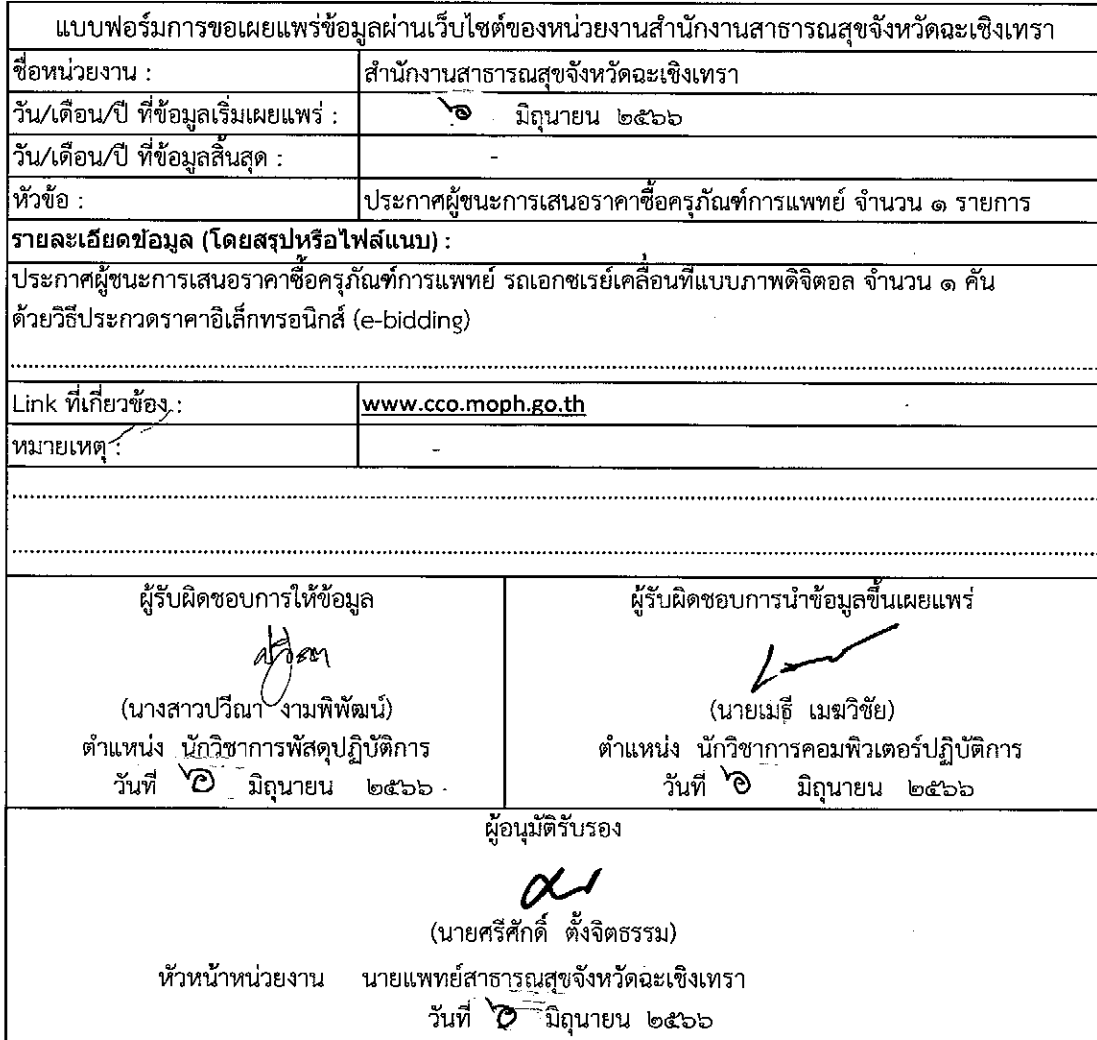 แบบฟอร์มการขอเผยแพร่ข้อมูลผ่านเว็บไซต์ของหน่วยงานสำนักงานสาธารณสุขจังหวัดฉะเชิงเทรา
ชื่อหน่วยงาน : สำนักงานสาธารณสุขจังหวัดฉะเชิงเทรา
วัน/เดือน/ปี ที่ข้อมูลเริ่มเผยแพร่ : ๖ มิถุนายน ๒๕๖๖
วัน/เดือน/ปี ที่ข้อมูลสิ้นสุด : -
หัวข้อ : ประกาศผู้ชนะการเสนอราคาซื้อครุภัณฑ์การแพทย์ จำนวน ๑ รายการ
รายละเอียดข้อมูล (โดยสรุปหรือไฟล์แนบ) :
ประกาศผู้ชนะการเสนอราคาซื้อครุภัณฑ์การแพทย์ รถเอกซเรย์เคลื่อนที่แบบภาพดิจิตอล จำนวน ๑ คัน
ด้วยวิธีประกวดราคาอิเล็กทรอนิกส์ (e-bidding)
Link ที่เกี่ยวข้อง : www.cco.moph.go.th
หมายเหตุ : -
ผู้รับผิดชอบการให้ข้อมูล ผู้รับผิดชอบการนำข้อมูลขึ้นเผยแพร่
(นางสาวปวีณา งามพิพัฒน์) (นายเมธี เมฆวิชัย)
ตำแหน่ง นักวิชาการพัสดุปฏิบัติการ ตำแหน่ง นักวิชาการคอมพิวเตอร์ปฏิบัติการ
วันที่ ๖ มิถุนายน ๒๕๖๖ วันที่ ๖ มิถุนายน ๒๕๖๖
ผู้อนุมัติรับรอง
(นายศรีศักดิ์ ตั้งจิตธรรม)
หัวหน้าหน่วยงาน นายแพทย์สาธารณสุขจังหวัดฉะเชิงเทรา
วันที่ ๖ มิถุนายน ๒๕๖๖